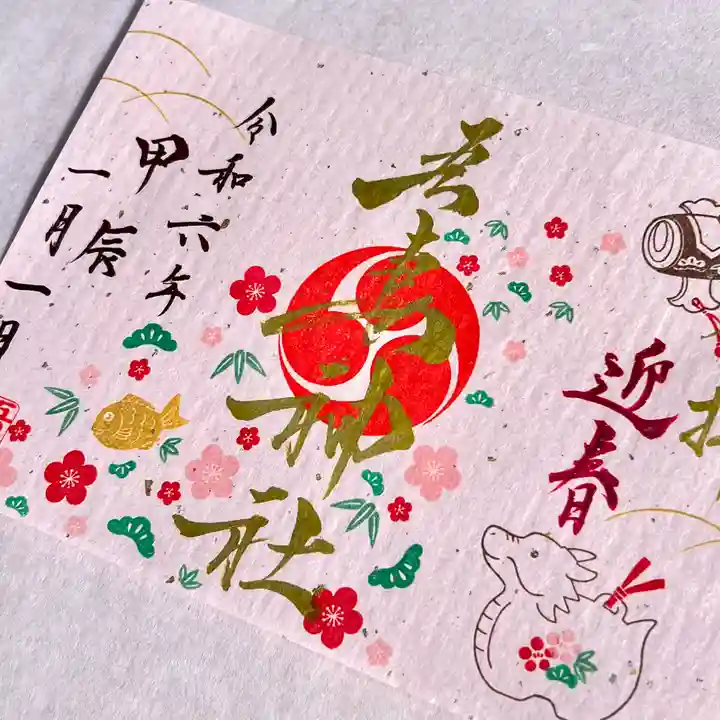 迎春
吾妻神社
令和六年
甲辰
一月一日